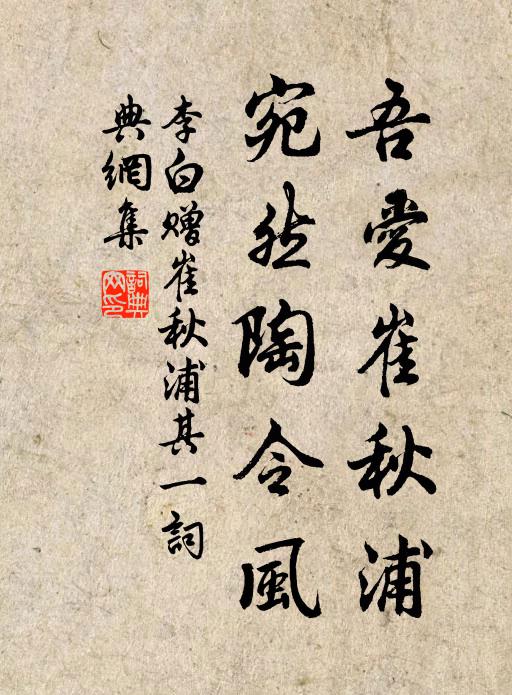 吾愛崔秋浦
宛然陶令風
李白赠崔秋浦其一詞
典網集
詞典
网印